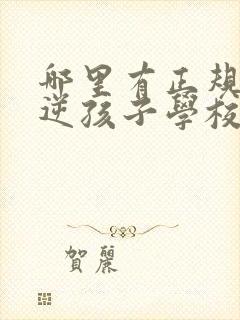 哪里有正規
逆孩子學校
賀麗